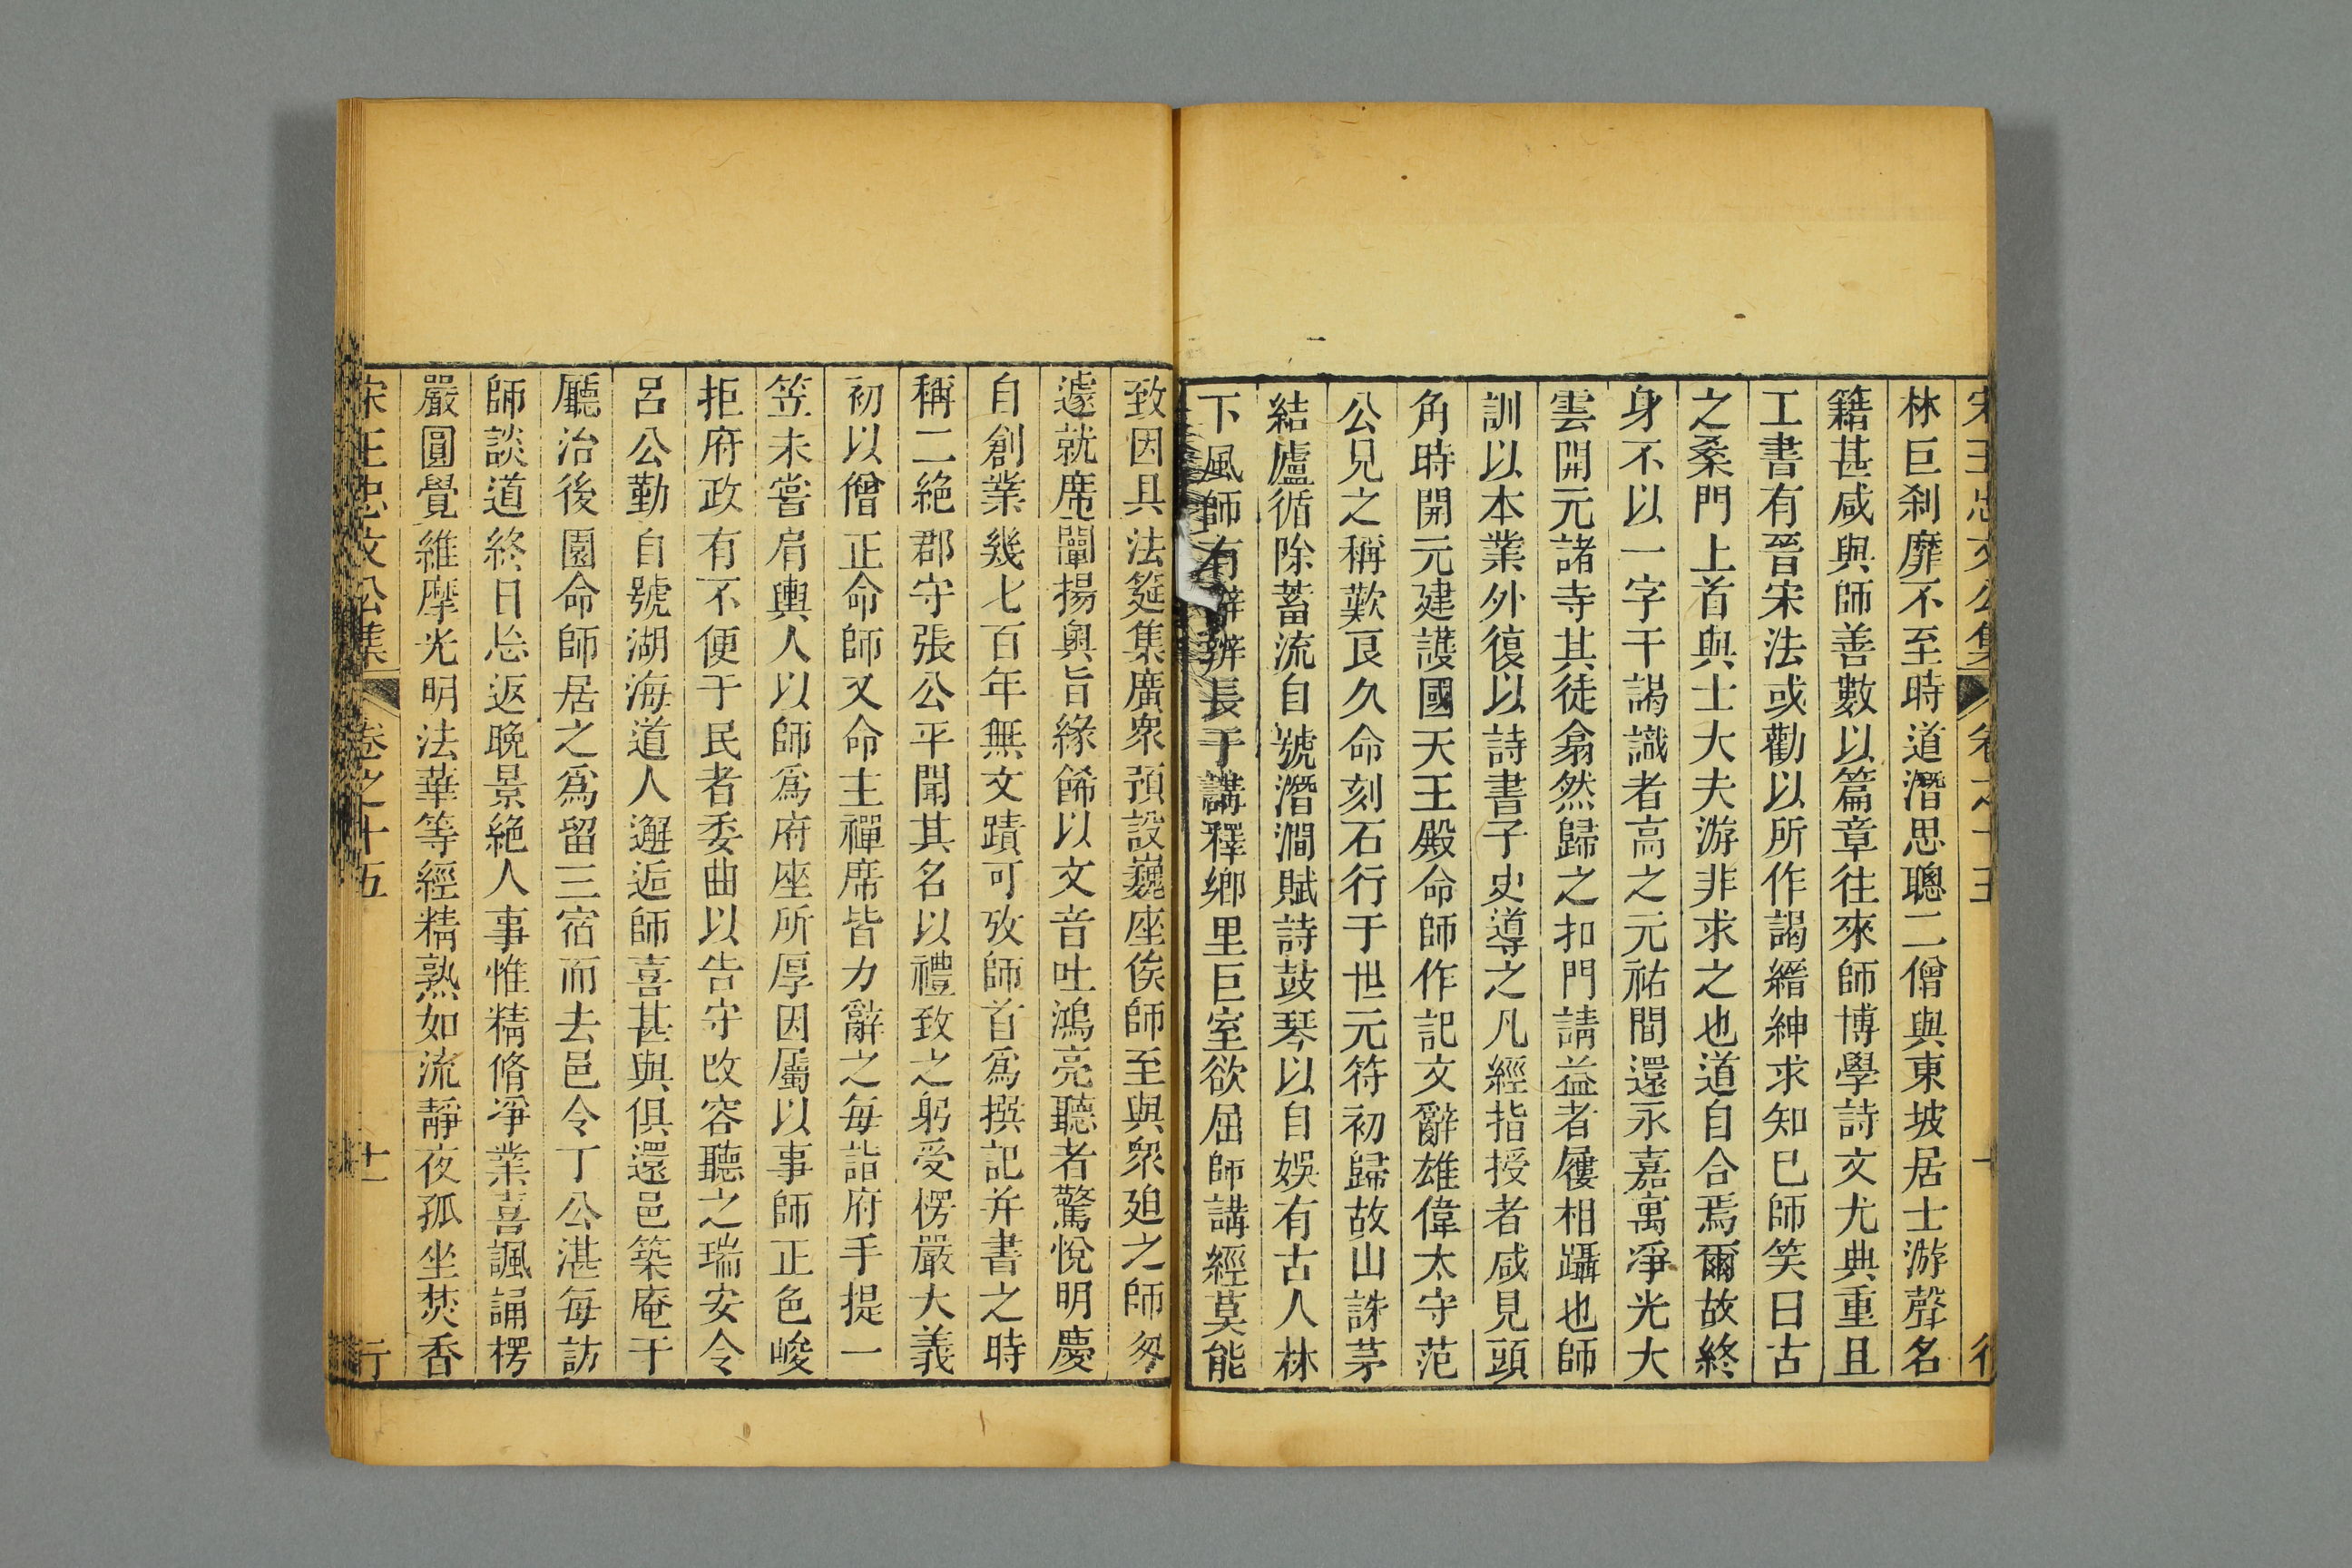 宋王忠文公集 卷之十五
林巨刹靡不至時道潛思聰二僧與東坡居士游聲名
籍甚咸與師善數以篇章往來師博學詩文尤典重且
工書有晉宋法或勸以所作謁縉紳求知已師笑曰古
之桑門上首與士大夫游非求之也道自合焉爾故終
身不以一字干謁識者高之元祐間還永嘉寓淨光大
雲開元諸寺其徒翕然歸之扣門請益者屨相躡也師
訓以本業外復以詩書子史導之凡經指授者咸見頭
角時開元建護國天王殿命師作記文辭雄偉太守范
公兄之稱歎良久命刻石行于世元符初歸故山誅茅
結廬循除蓄流自號潛澗賦詩鼓琴以自娛有古人林
下風師有辯長于講釋鄉里巨室欲屈師講經莫能
致因具法筵集廣衆預設巍座俟師至與衆廹之師匆
遽就席闡揚輿旨緣餙以文音吐鴻亮聽者驚悅明慶
自創業幾七百年無文蹟可攷師首爲撰記并書之時
稱二絶郡守張公平聞其名以禮致之躬受楞嚴大義
初以僧正命師又命主禪席皆力辭之每詣府手提一
笠未嘗肩輿人以師爲府座所厚因屬以事師正色峻
拒府政有不便于民者委曲以告守改容聽之瑞安令
呂公勤自號湖海道人邂逅師喜甚與俱還邑築庵于
廳治後園命師居之爲留三宿而去邑令丁公湛每訪
師談道終日忘返晚景絶人事惟精脩淨業喜諷誦楞
嚴圓覺維摩光明法華等經精熟如流靜夜孤坐焚香
宋王忠文公集 卷之十五 十一 行